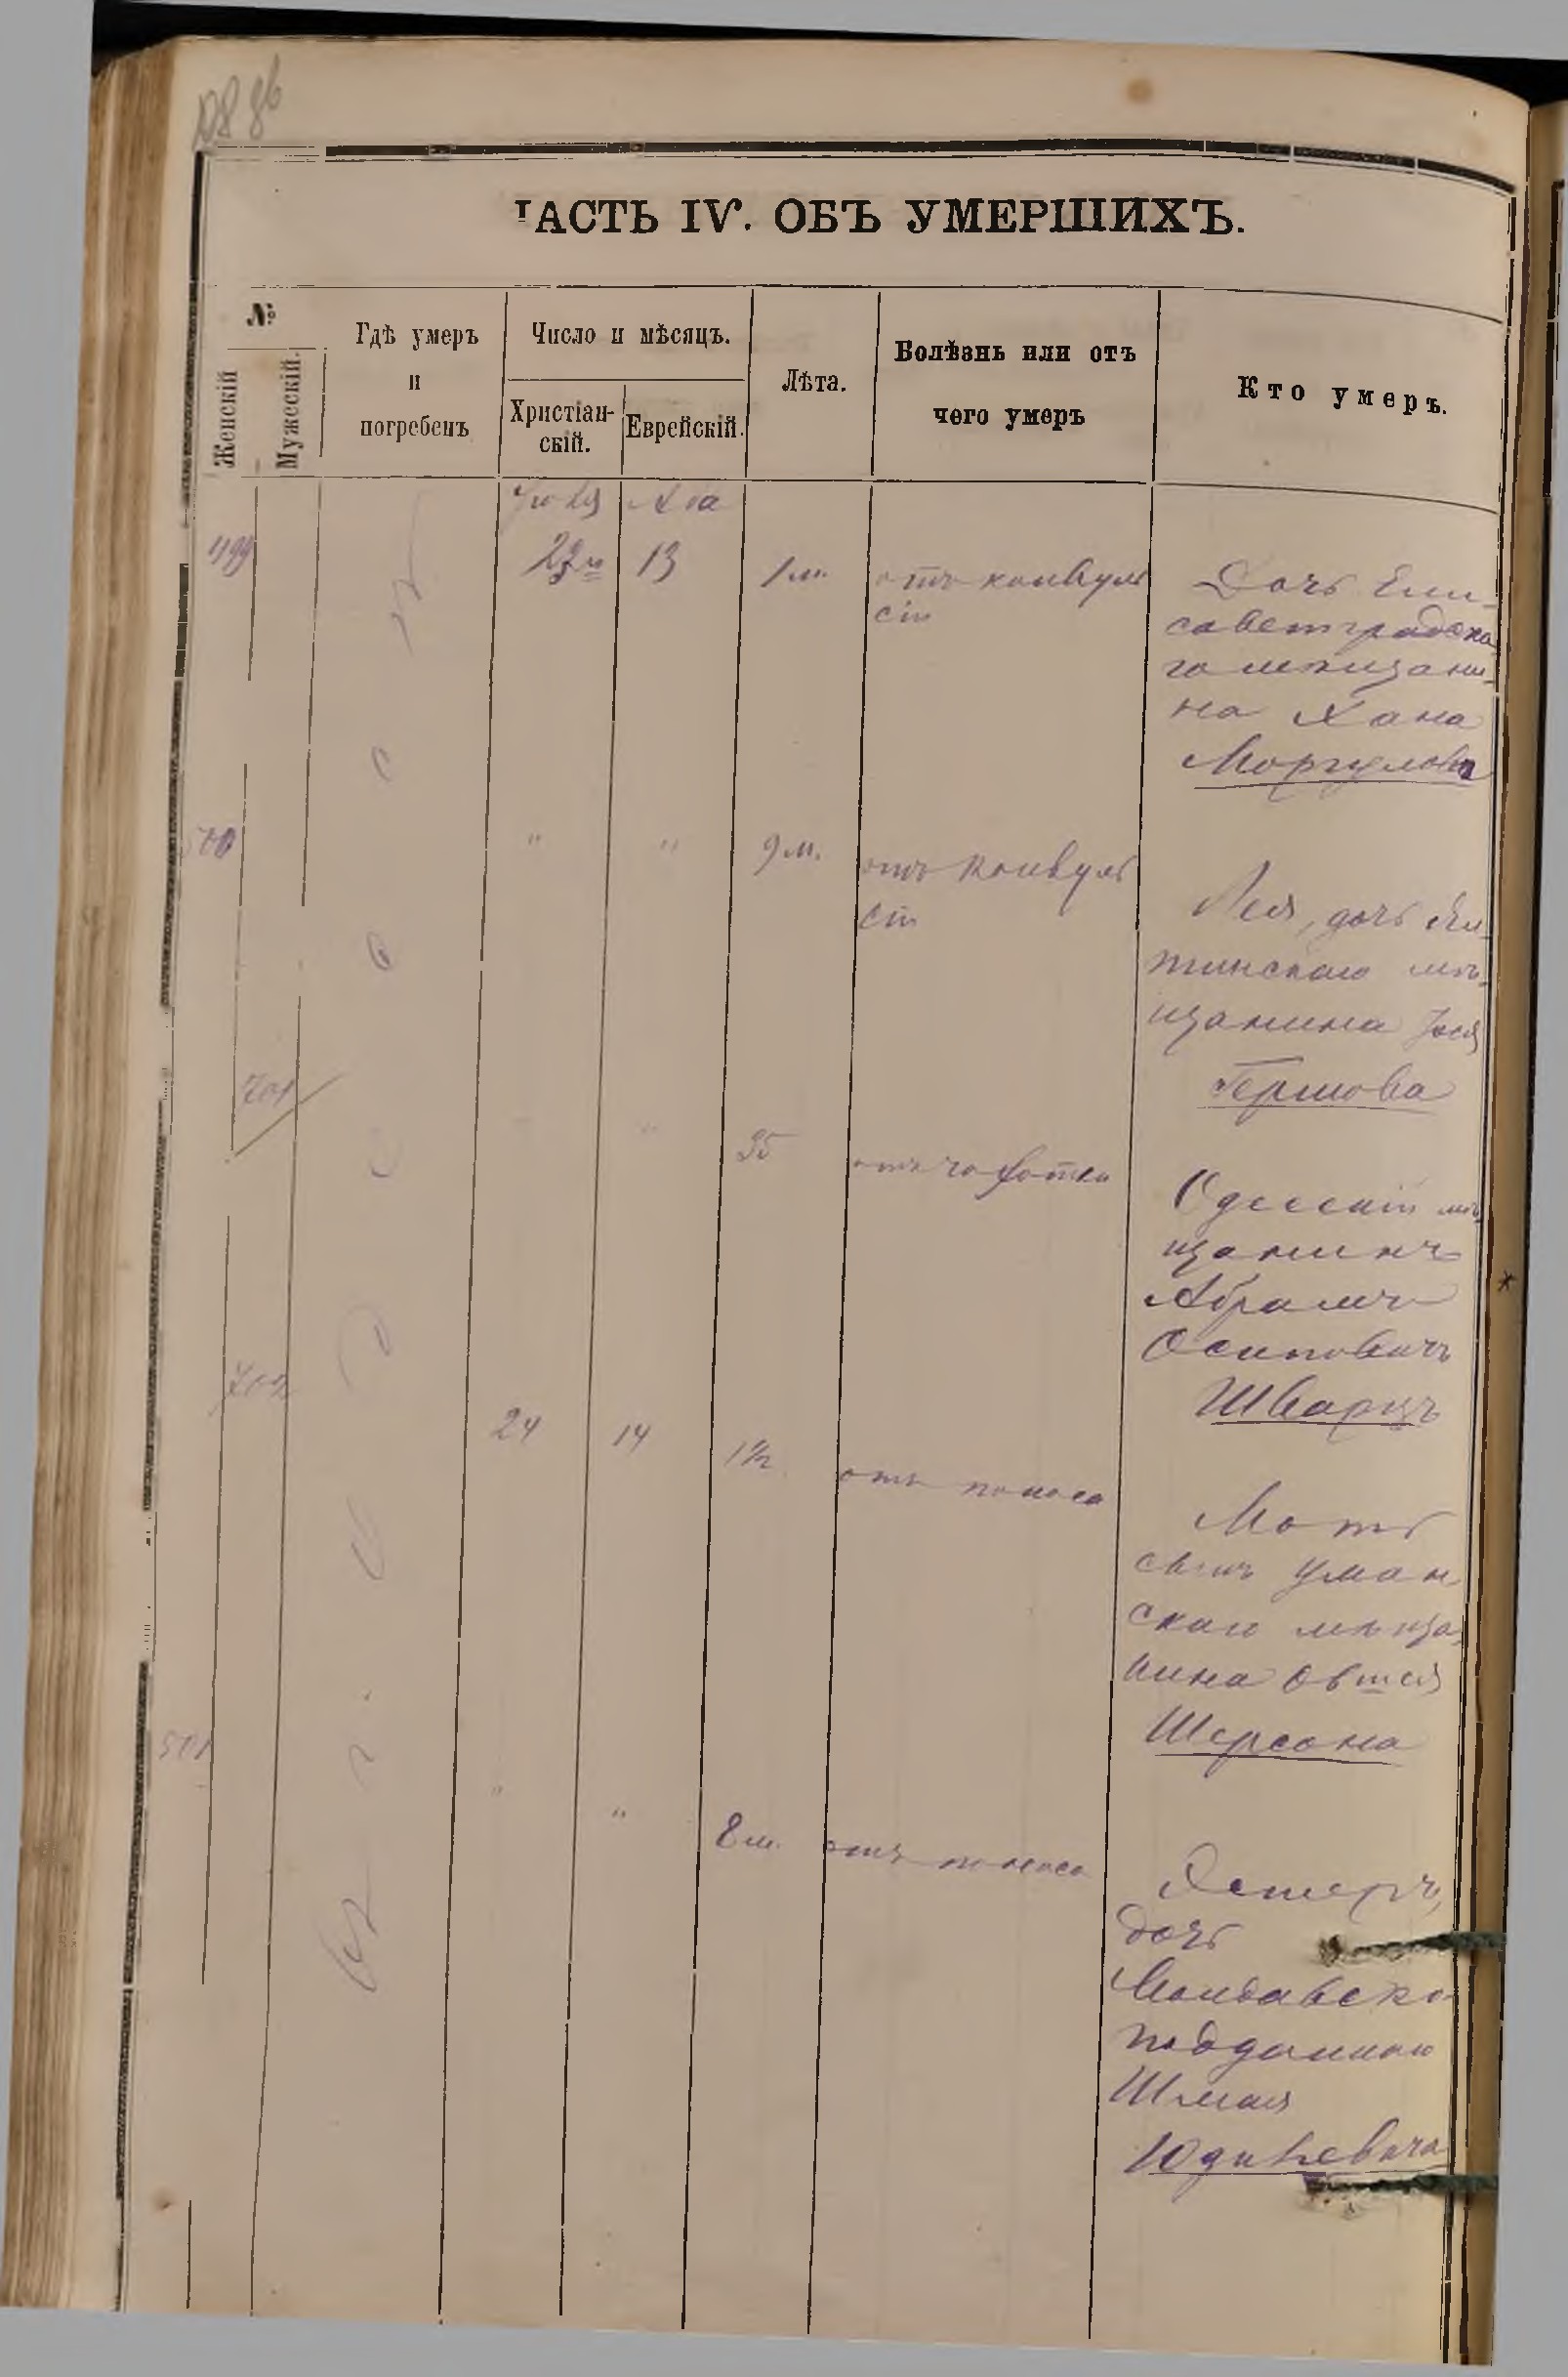 ЧАСТЬ IV. ОБЪ УМЕРШИХЪ.
№
Женскій
Мужескій.
Гдѣ умеръ
и
погребенъ
Число и мѣсяцъ.
Христіан-
скій.
Еврейскій.
Лѣта.
Болѣзнь или отъ
чего умеръ
Кто умеръ.
Іюля
Ава
499
13
1 м.
отъ конвуль
сіи
Дочь Ели-
саветградска
го мѣщани-
на Хана
Моргулова
500
"
"
9 м.
отъ конвуль
сіи
Лея, дочь
тинскаго мѣ-
щанина Іося
Гершова
701
"
35
отъ чахотки
Одесскій мѣ-
щанинъ
Абрамъ
Осиповичъ
Шварцъ
702
24
14
1½
отъ поноса
Моть
сынъ Уман
скаго мѣща-
нина Овшея
Шерсона
501
"
"
8 м.
отъ поноса
Эстеръ,
дочь
Молдавско-
подданнаго
Шмая
Юдилевича
Въ г. Одессѣ